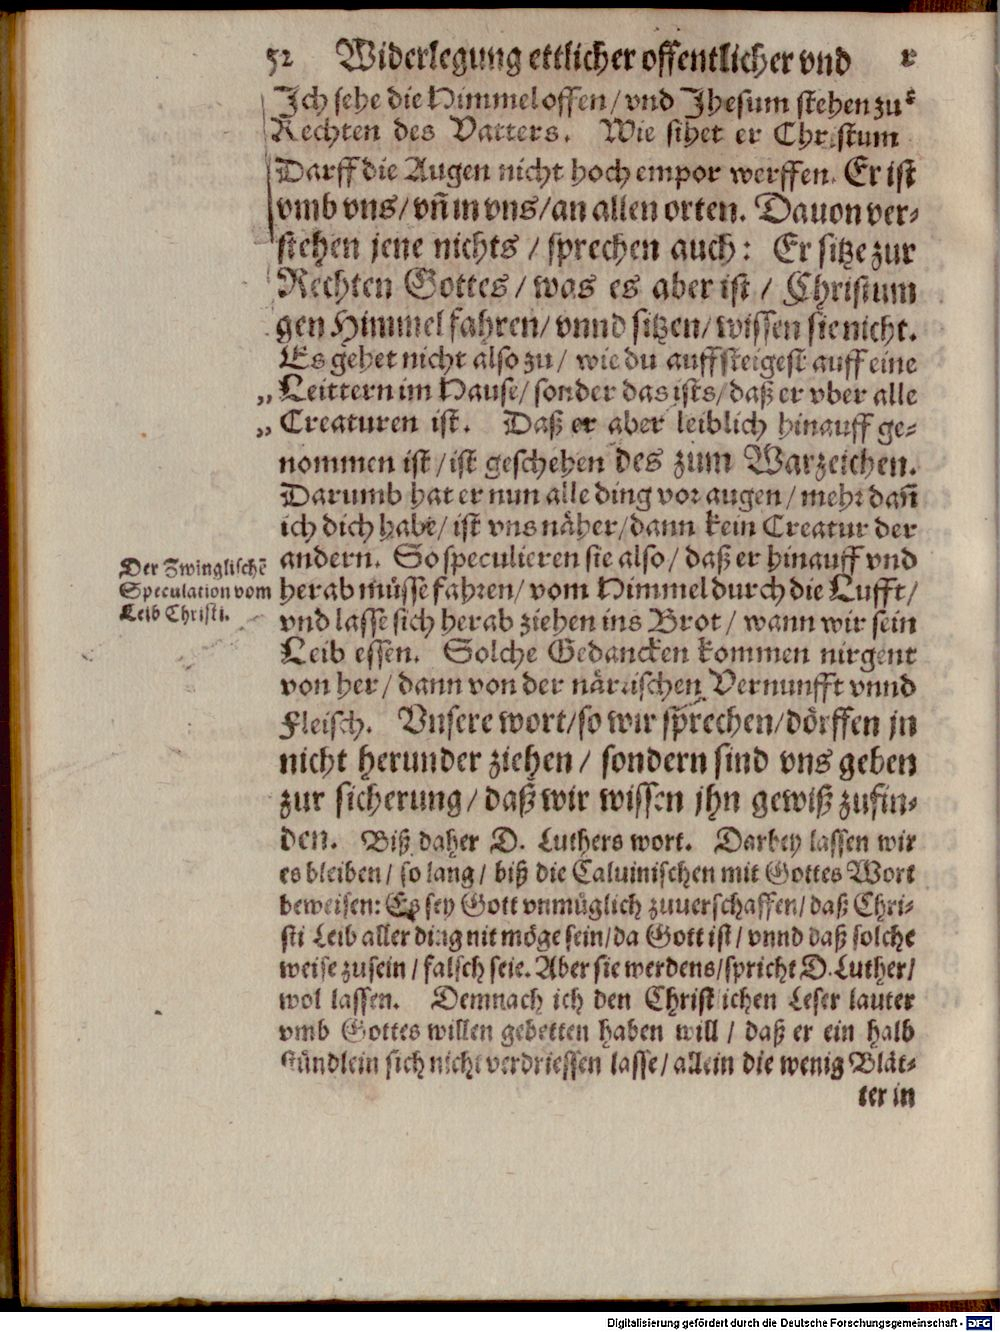 52 Widerlegung ettlicher offentlicher vnd
Ich sehe die Himmel offen/ vnd Jhesum stehen zu
Rechten des Vatters. Wie sihet er Christum
Darff die Augen nicht hoch empor werffen. Er ist
vmb vns/ vñ in vns/ an allen orten. Dauon ver-
stehen jene nichts / sprechen auch: Er sitze zur
Rechten Gottes/ was es aber ist / Christum
gen Himmel fahren/ vnnd sitzen/ wissen sie nicht.
Es gehet nicht also zu/ wie du auffsteigest auff eine
„ Leittern im Hause/ sonder das ists/ daß er vber alle
„ Creaturen ist. Daß er aber leiblich hinauff ge-
nommen ist/ ist geschehen des zum Warzeichen.
Darumb hat er nun alle ding vor augen/ mehr dañ
ich dich habe/ ist vns näher/ dann kein Creatur der
andern. So speculieren sie also/ daß er hinauff vnd
Der Zwinglischē
Speculation vom
Leib Christi.
herab müsse fahren/ vom Himmel durch die Lufft/
vnd lasse sich herab ziehen ins Brot/ wann wir sein
Leib essen. Solche Gedancken kommen nirgent
von her/ dann von der närrischen Vernunfft vnnd
Fleisch. Vnsere wort/ so wir sprechen/ dörffen jn
nicht herunder ziehen/ sondern sind vns geben
zur sicherung/ daß wir wissen jhn gewiß zufin-
den. Biß daher D. Luthers wort. Darbey lassen wir
es bleiben/ so lang/ biß die Caluinischen mit Gottes Wort
beweisen: Es sey Gott vnmüglich zuuerschaffen/ daß Chri-
sti Leib aller ding nit möge sein/ da Gott ist/ vnnd daß solche
weise zusein/ falsch seie. Aber sie werdens/ spricht D. Luther/
wol lassen. Demnach ich den Christlichen Leser lauter
vmb Gottes willen gebetten haben will/ daß er ein halb
stündlein sich nicht verdriessen lasse/ allein die wenig Blät-
ter in
Digitalisierung gefördert durch die Deutsche Forschungsgemeinschaft - DFG